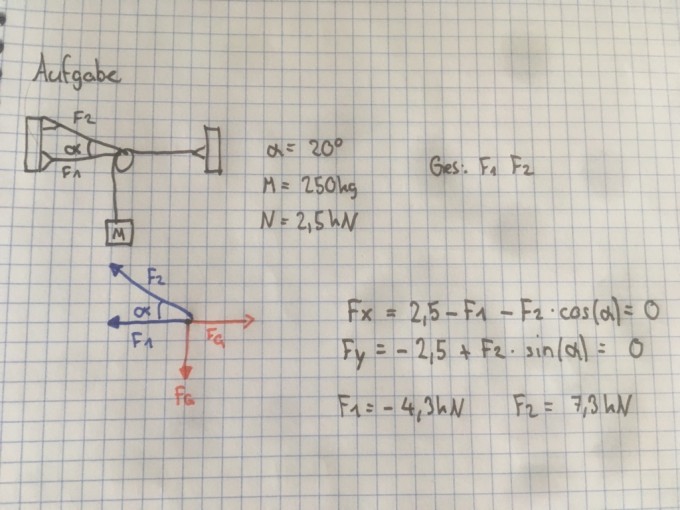 Aufgabe
F2
α
F1
M
α = 20°
M = 250kg
N = 2,5kN
Ges.: F1 F2
F2
α
F1
FG
FG
Fx = 2,5 - F1 - F2 · cos(α) = 0
Fy = - 2,5 + F2 · sin(α) = 0
F1 = - 4,3kN F2 = 7,3kN